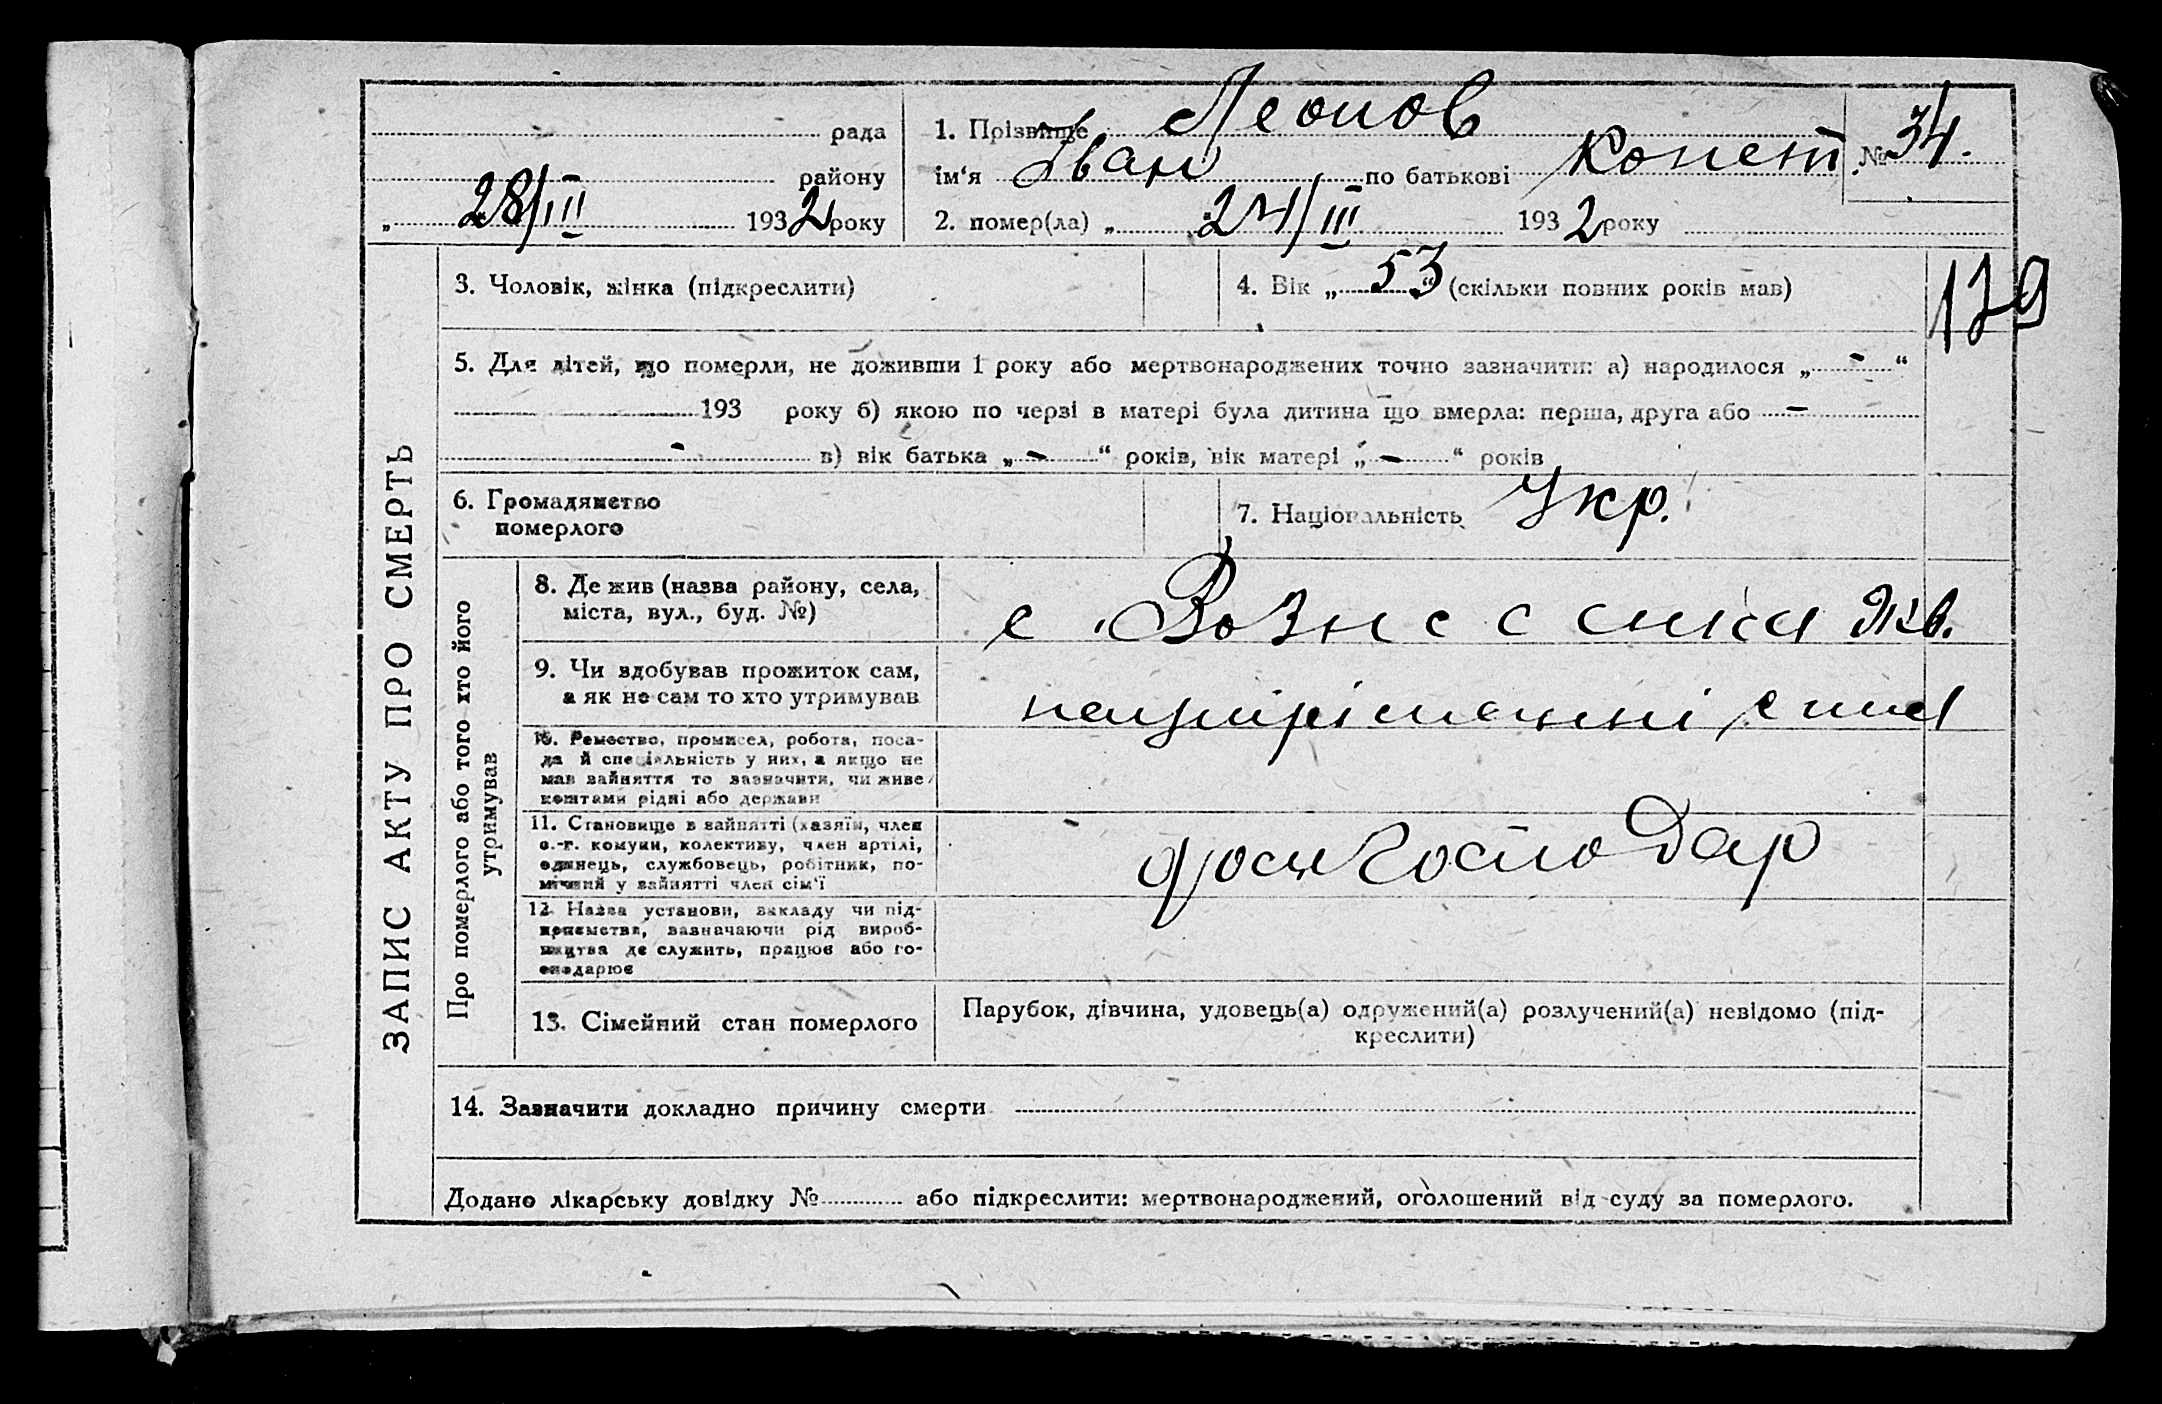 рада
району
„ 28/III 1932 року
1. Прізвище Леонов
ім‘я Іван по батькові Конст. № 34.
2. помер(ла) „ 24/III 1932 року
ЗАПИС АКТУ ПРО СМЕРТЬ
3. Чоловік, жінка (підкреслити)
4. Вік „ 53 “ (скільки повних років мав)
139
5. Для дітей, що померли, не доживши 1 року або мертвонароджених точно зазначити: а) народилося „ - “
193 року б) якою по черзі в матері була дитина що вмерла: перша, друга або -
- в) вік батька „ - “ років, вік матері „ - “ років
6. Громадянство
померлого
7. Національність Укр.
Про померлого або того хто його
утримував
8. Де жив (назва району, села,
міста, вул., буд. №)
с.
9. Чи здобував прожиток сам,
а як не сам то хто утримував
10. Ремество, промисел, робота, поса-
да й спеціяльність у них, а якщо не
мав зайняття то зазначити, чи живе
коштами рідні або держави
11. Становище в зайнятті (хазяїн, член
с.-г. комуни, колективу, член артілі,
одинець, службовець, робітник, по-
мічний у зайнятті член сім‘ї
господар
12. Назва установи, закладу чи під-
приємства, зазначаючи рід вироб-
ництва де служить, працює або го-
сподарює
13. Сімейний стан померлого
Парубок, дівчина, удовець(а) одружений(а) розлучений(а) невідомо (під-
креслити)
14. Зазначити докладно причину смерти
Додано лікарську довідку № або підкреслити: мертвонароджений, оголошений від суду за померлого.